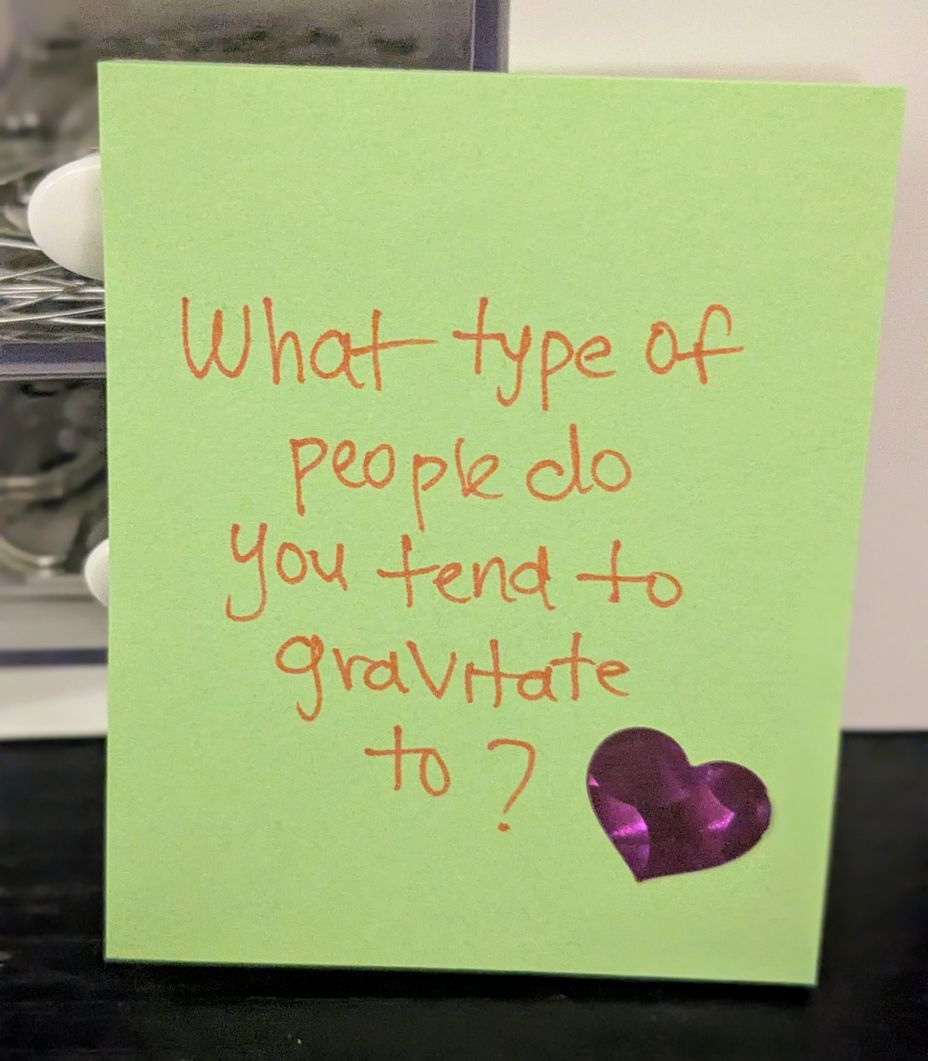 What type of
people do
you tend to
gravitate
to?